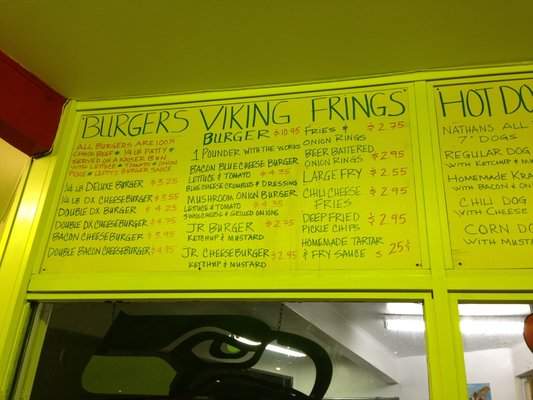 BURGERS
ALL BURGERS ARE 100%
CHUCK BEEF * 1/4 LB PATTY *
SERVED ON A KAISER BUN
WITH LETTUCE * TOMATO * ONION
SAUCE
1/4 LB DELUXE BURGER $3.25
1/4 LB DX CHEESEBURGER $3.55
DOUBLE DX BURGER $4.25
DOUBLE DX CHEESEBURGER
BACON CHEESEBURGER
DOUBLE BACON CHEESEBURGER $4.95
VIKING
BURGER $10.95
1 POUNDER WITH THE WORKS
BACON BLUE CHEESE BURGER
LETTUCE & TOMATO $4.35
BLUECHEESE CRUMBLES & DRESSING
MUSHROOM ONION BURGER
LETTUCE & TOMATO $4.35
& GRILLED ONIONS
JR BURGER $2.75
KETCHUP & MUSTARD
JR CHEESEBURGER $2.95
KETCHUP & MUSTARD
FRINGS
FRIES & $2.75
ONION RINGS
BEER BATTERED
ONION RINGS $2.95
LARGE FRY $2.55
CHILI CHEESE $2.95
FRIES
DEEP FRIED $2.95
PICKLE CHIPS
HOMEMADE TARTAR
& FRY SAUCE $ 25¢
HOT DO
NATHANS ALL
7" DOGS
REGULAR DOG
WITH KETCHUP & M
HOMEMADE KRA
WITH BACON & ON
CHILI DOG
WITH CHEESE
CORN DO
WITH MUST